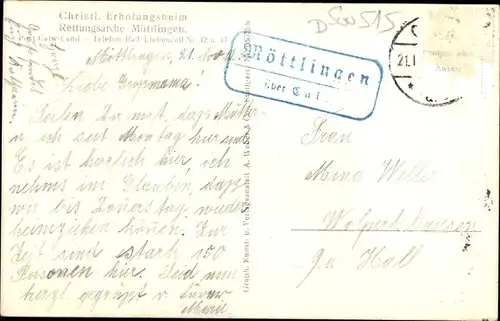 Christl. Erholungsheim
Rettungsarche Möttlingen.
Post Calw Land — Telefon Bad Liebenzell Nr. 42 u. 47
Möttlingen 21. Nov.
Liebe Großmama!
Teilen Dir mit, daß Mutter
u ich seit Montag hier sind.
Es ist herrlich hier, ich
nehms im Glauben, daß
wir bis Donerstag wieder
heimziehen könen. Zur
Zeit sind stark 150
Personen hier. Seid nun
herzl gegrüßt v. Eurer
Marie
Graph. Kunst- u. Verlagsanstalt A. Weber &
Möttlingen
über Calw
21.1
DSW515
Frau
Mina Weller
Wolpertshausen
Ga Hall